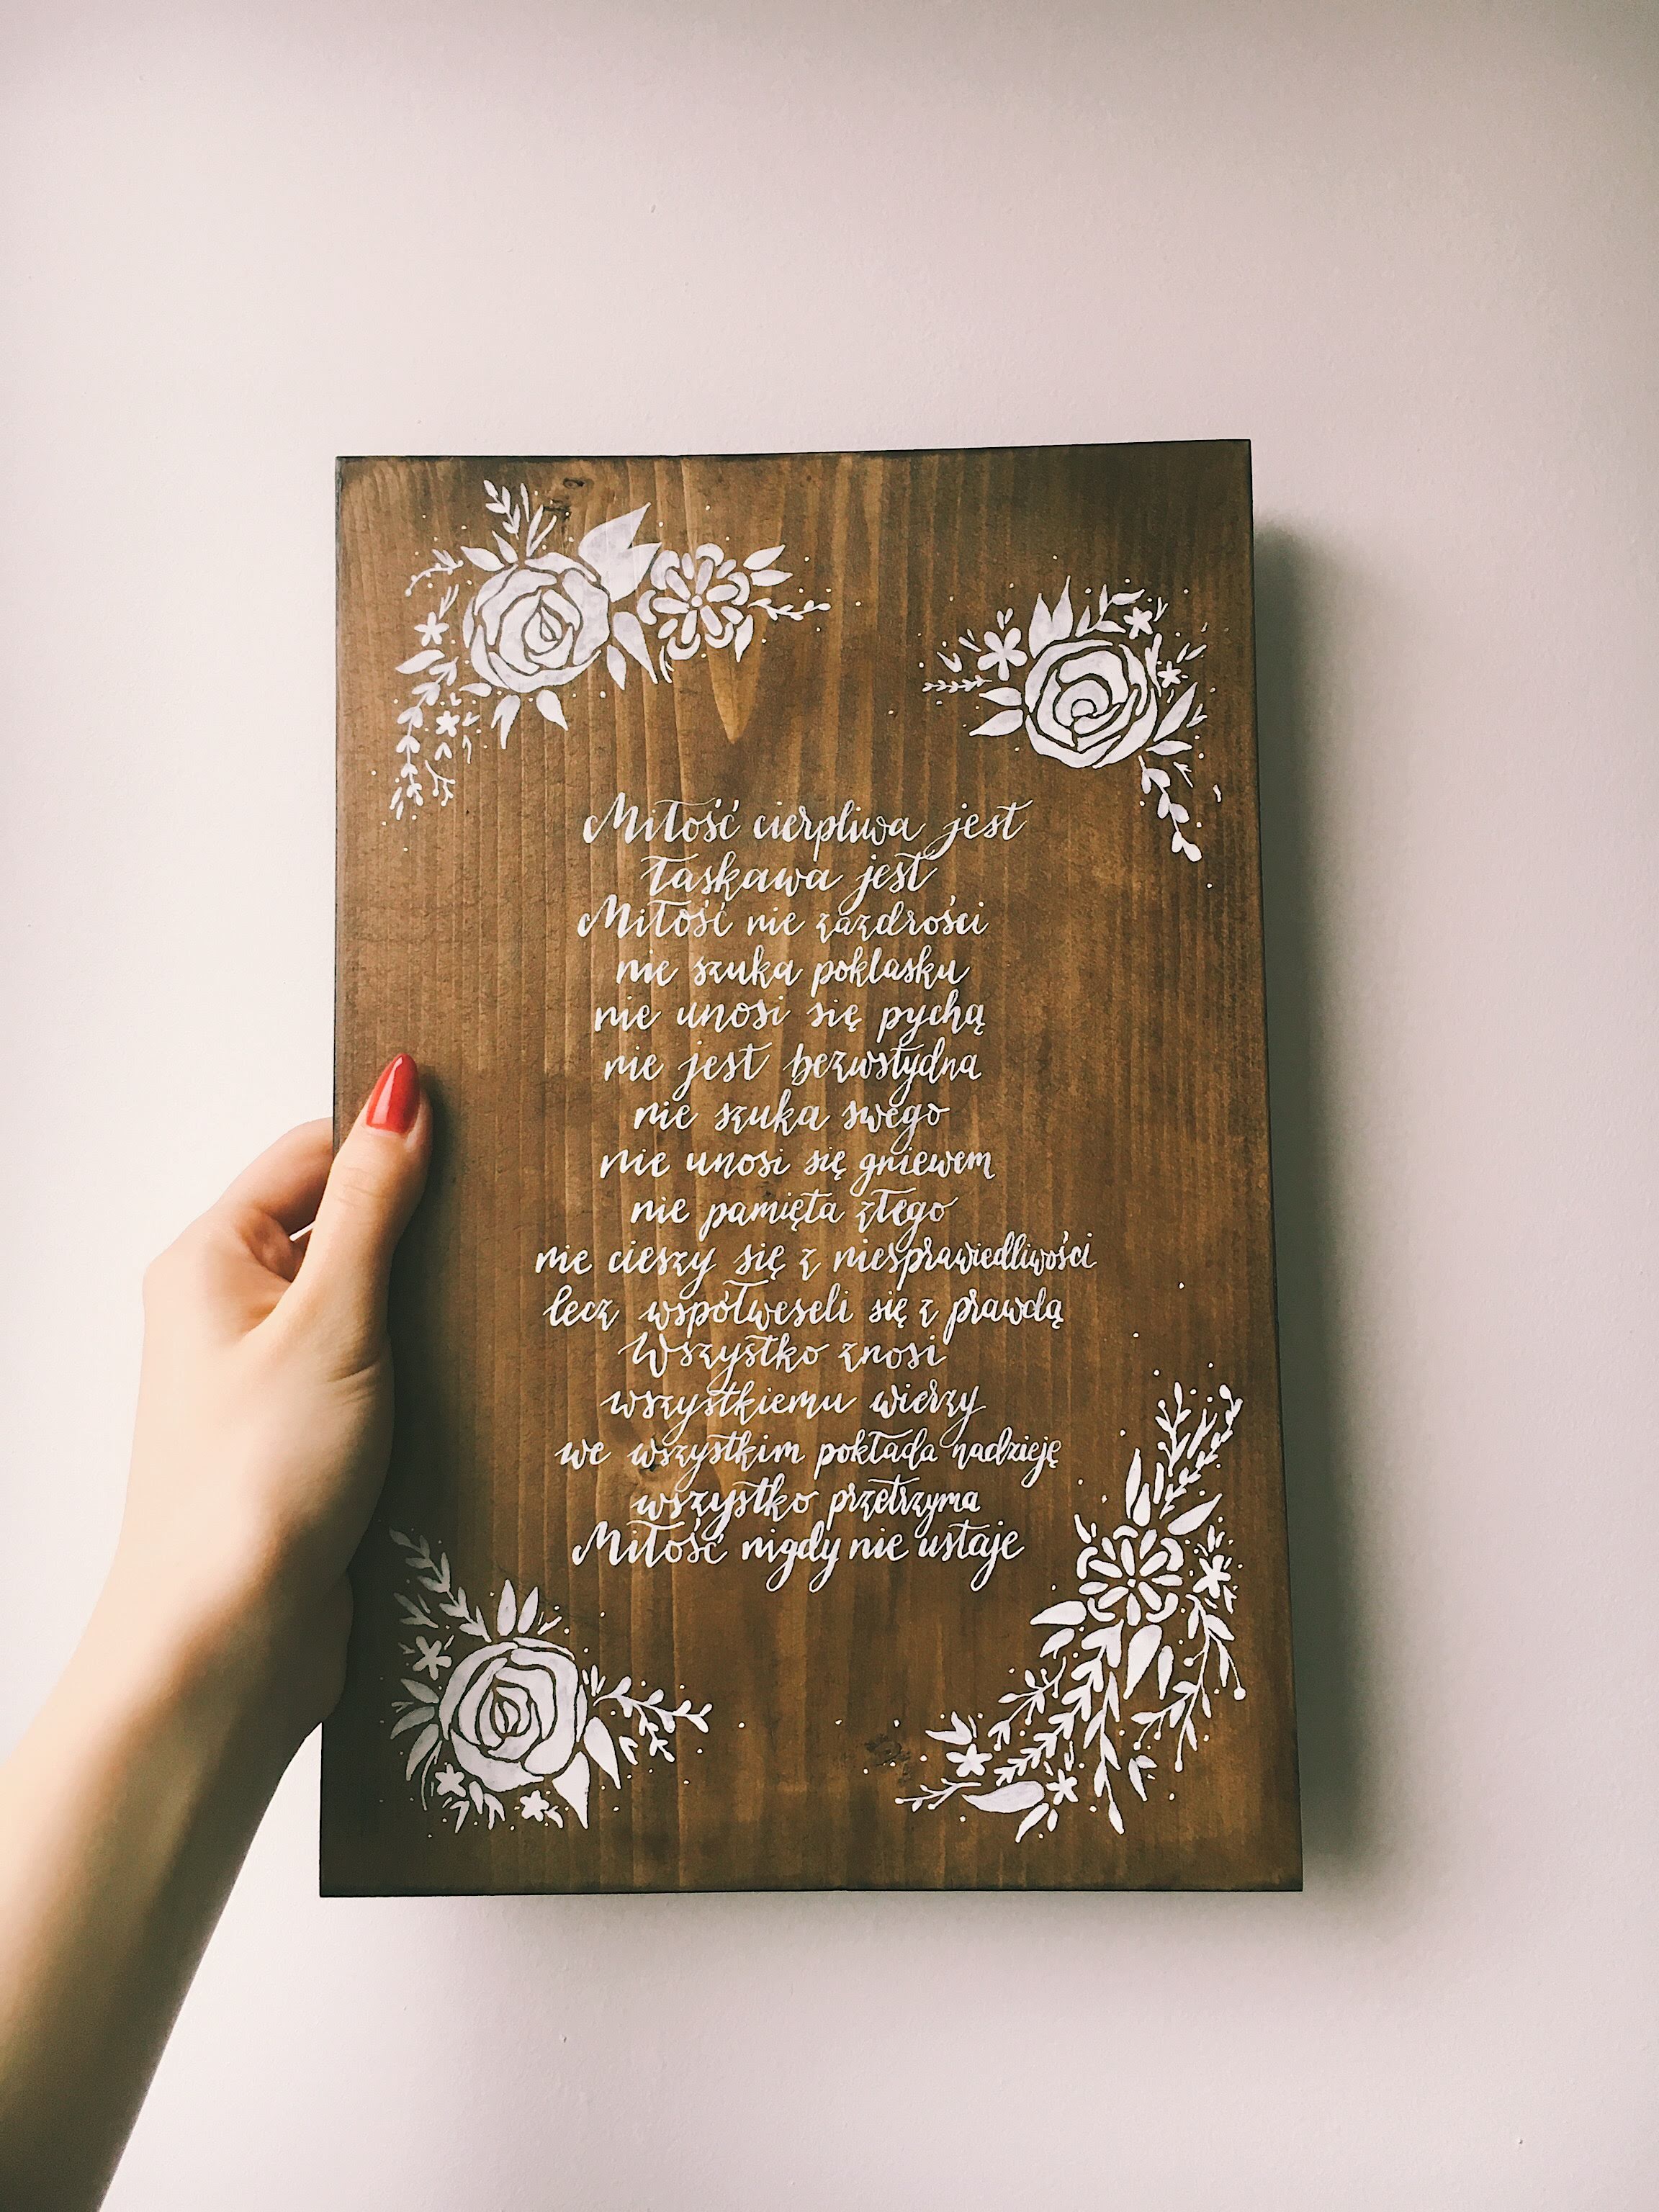 Miłość cierpliwa jest
łaskawa jest
Miłość nie zazdrości
nie szuka poklasku
nie unosi się pychą
nie jest bezwstydna
nie szuka swego
nie unosi się gniewem
nie pamięta złego
nie cieszy się z niesprawiedliwości
lecz współweseli się z prawdą
Wszystko znosi
wszystkiemu wierzy
we wszystkim pokłada nadzieję
wszystko przetrzyma
Miłość nigdy nie ustaje